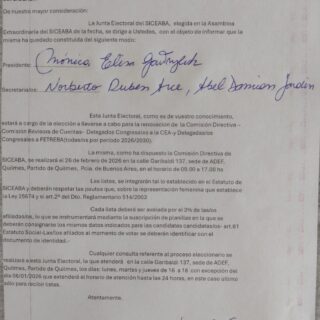 De nuestra mayor consideración:
La Junta Electoral del SICEABA, elegida en la Asamblea
Extraordinaria del SICEABA de la fecha, se dirige a Ustedes, con el objeto de informar que la
misma ha quedado constituida del siguiente modo:
Presidente: Mónica Elisa
Secretarios: Norberto Ruben Arce, Abel Damian
Esta Junta Electoral, como es de vuestro conocimiento,
estará a cargo de la elección a llevarse a cabo para la renovación de la Comisión Directiva –
Comisión Revisora de Cuentas- Delegados Congresales a la CEA-y Delegadas/os
Congresales a FETRERA(todas/os por periodo 2026/2030).
La misma, como ha dispuesto la Comisión Directiva de
SICEABA, se realizará el 26 de febrero de 2026 en la calle Garibaldi 137, sede de ADEF,
Quilmes, Partido de Quilmes, Pcia. de Buenos Aires, en el horario de 09.00 a 17.00 hs
Las listas, se integrarán tal lo establecido en el Estatuto de
SICEABA y deberán respetar las pautas que, sobre la representación femenina que establece
la Ley 25674 y el art.2º del Dto. Reglamentario 514/2003
Cada lista deberá ser avalada por el 3% de las/os
afiliadas/os, lo que se instrumentará mediante la suscripción de planillas en la que se
deberán consignarse los mismos datos indicados para las candidatas candidatas/os- art.61
Estatuto Social-Las/los afiliados al momento de votar se deberán identificar con el
documento de identidad.-
Cualquiera consulta referente al proceso eleccionario se
realizará a esta Junta Electoral, la que atenderá en la calle Garibaldi 137, sede de ADEF,
Quilmes, Partido de Quilmes, los días; lunes, martes y jueves de 16 a 18 con excepción del
día 06/01/2026 que extenderá el horario de atención hasta las 24 horas, en este caso último
sólo para recibir listas.
Atentamente.